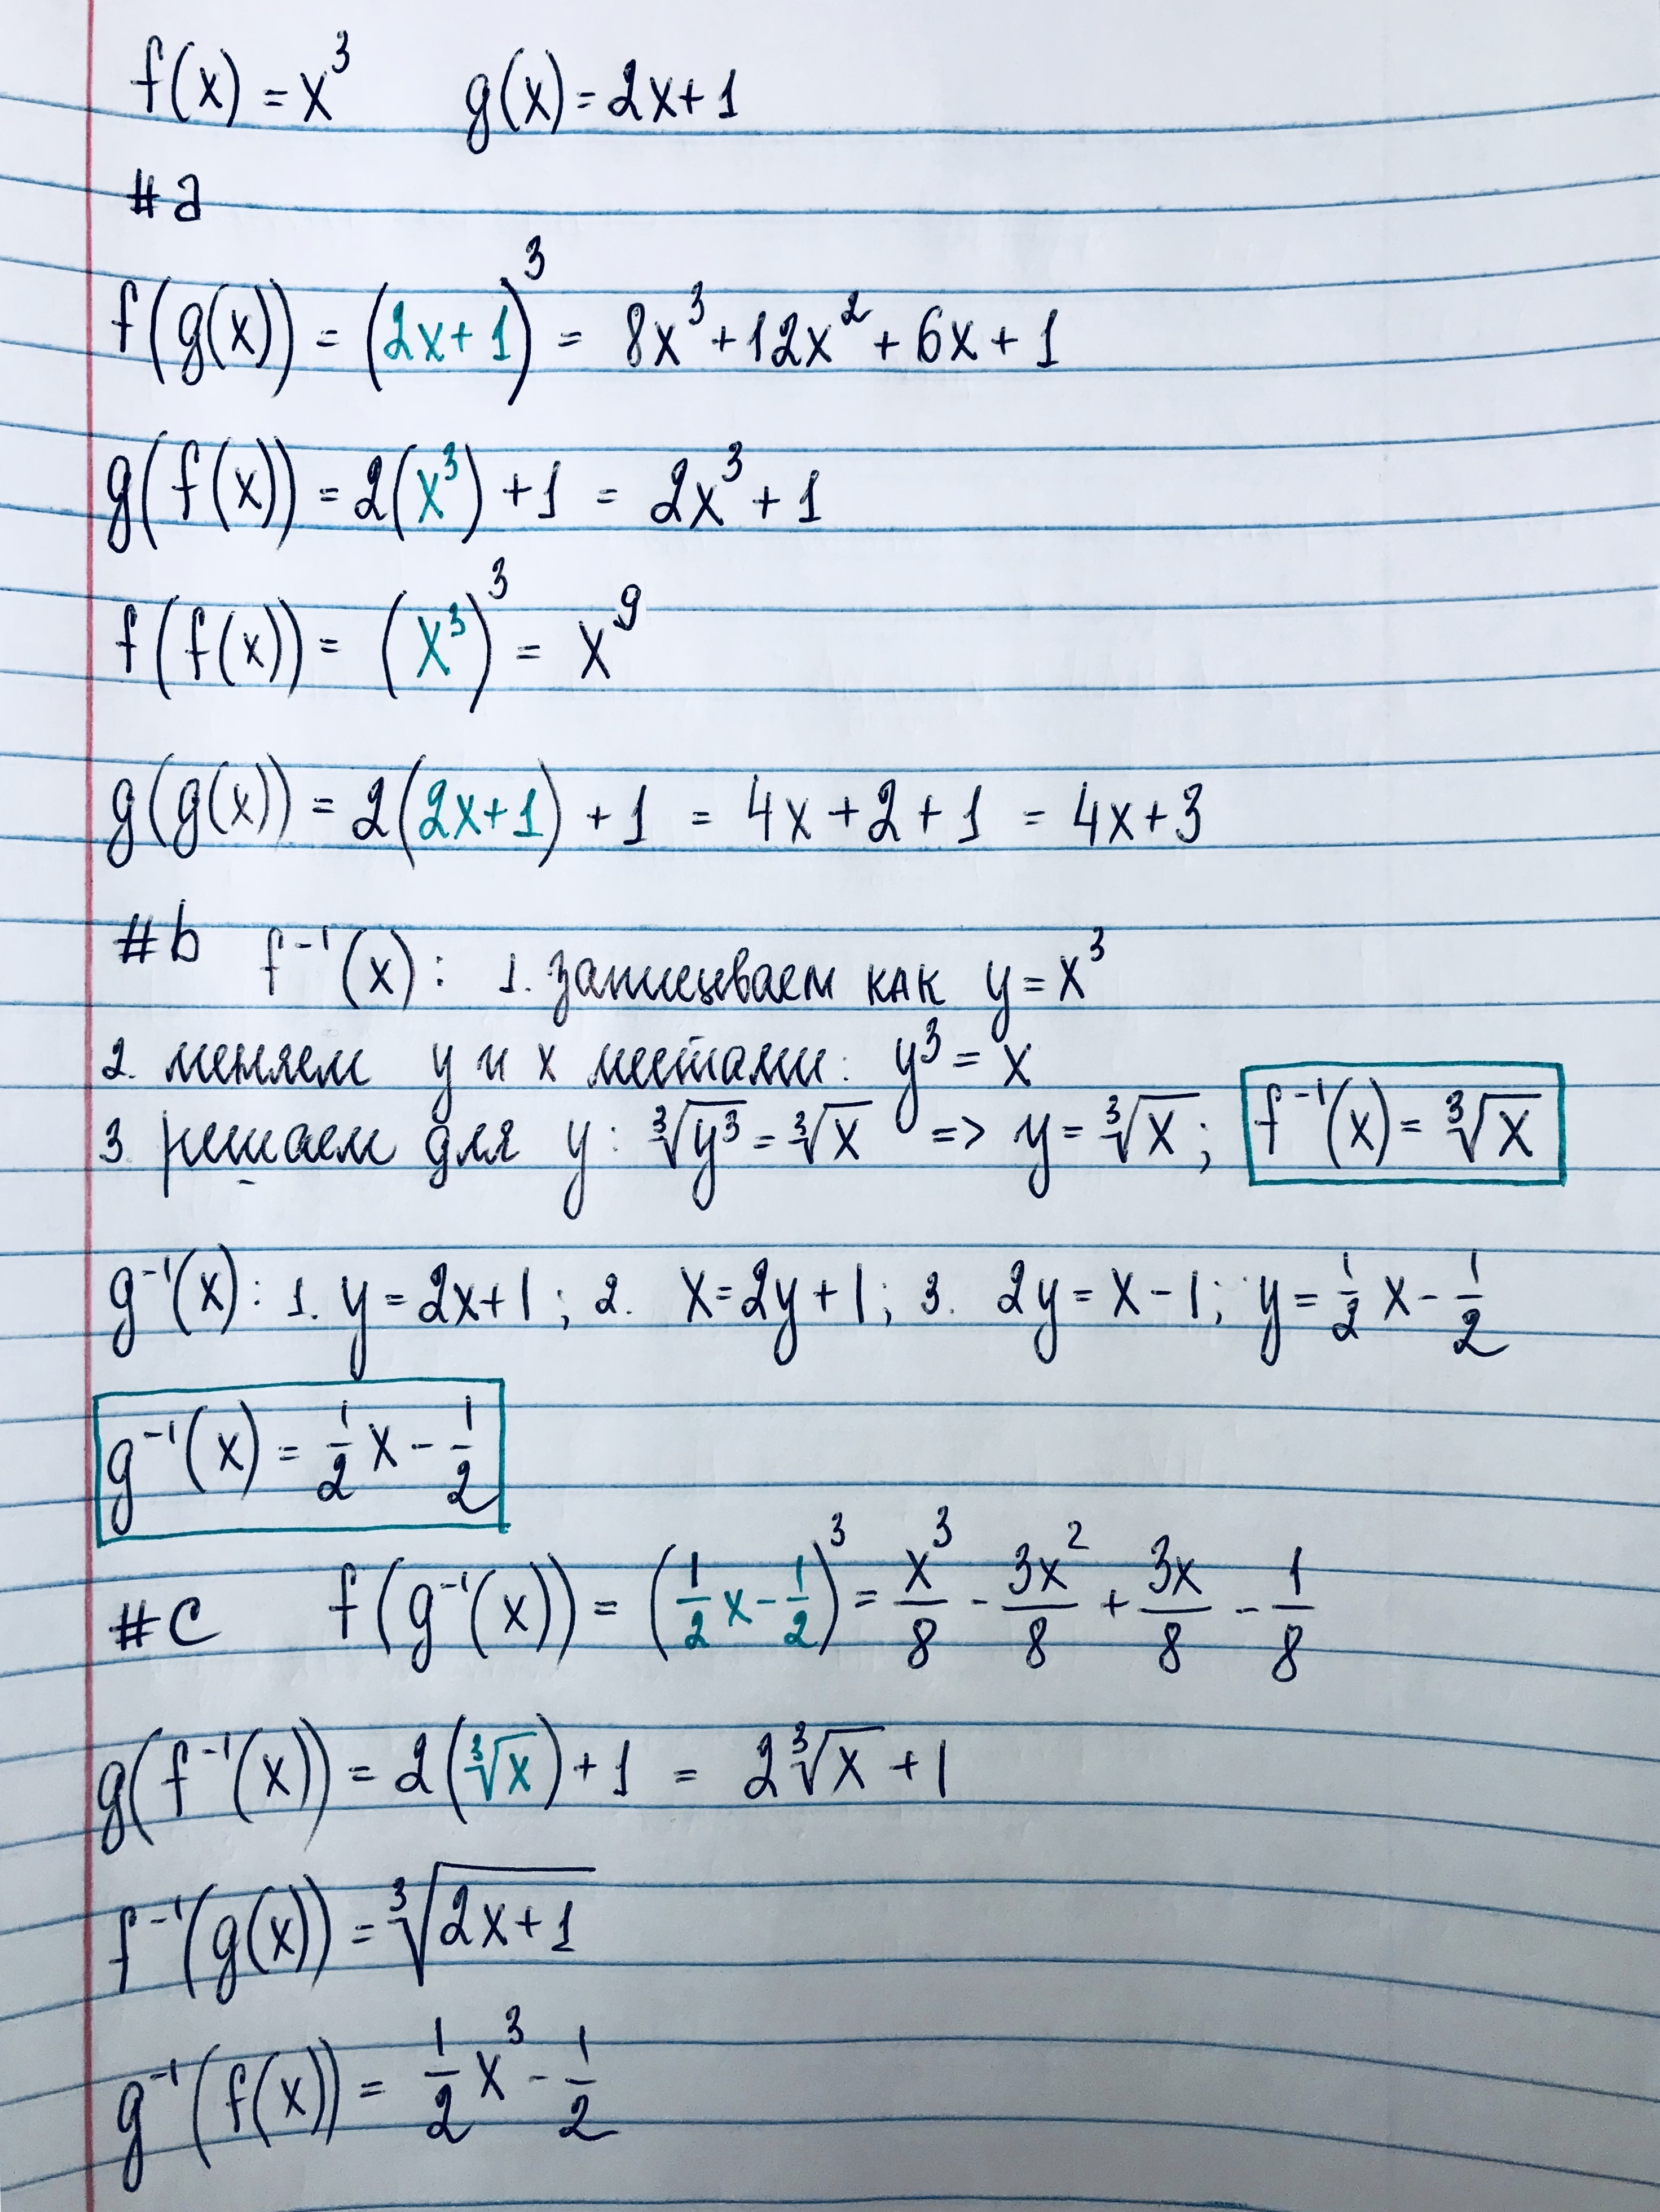 f(x) = x³   g(x) = 2x+1
#a
f(g(x)) = (2x+1)³ = 8x³+12x²+6x+1
g(f(x)) = 2(x³)+1 = 2x³+1
f(f(x)) = (x³)³ = x⁹
g(g(x)) = 2(2x+1)+1 = 4x+2+1 = 4x+3
#b f⁻¹(x): 1. записываем как y = x³
2. меняем y и x местами: y³ = x
3. решаем для y: ∛y³ = ∛x => y = ∛x; f⁻¹(x) = ∛x
g⁻¹(x): 1. y = 2x+1; 2. x = 2y+1; 3. 2y = x-1; y = 1/2 x - 1/2
g⁻¹(x) = 1/2 x - 1/2
#c f(g⁻¹(x)) = (1/2 x - 1/2)³ = x³/8 - 3x²/8 + 3x/8 - 1/8
g(f⁻¹(x)) = 2(∛x)+1 = 2∛x+1
f⁻¹(g(x)) = ∛(2x+1)
g⁻¹(f(x)) = 1/2 x³ - 1/2